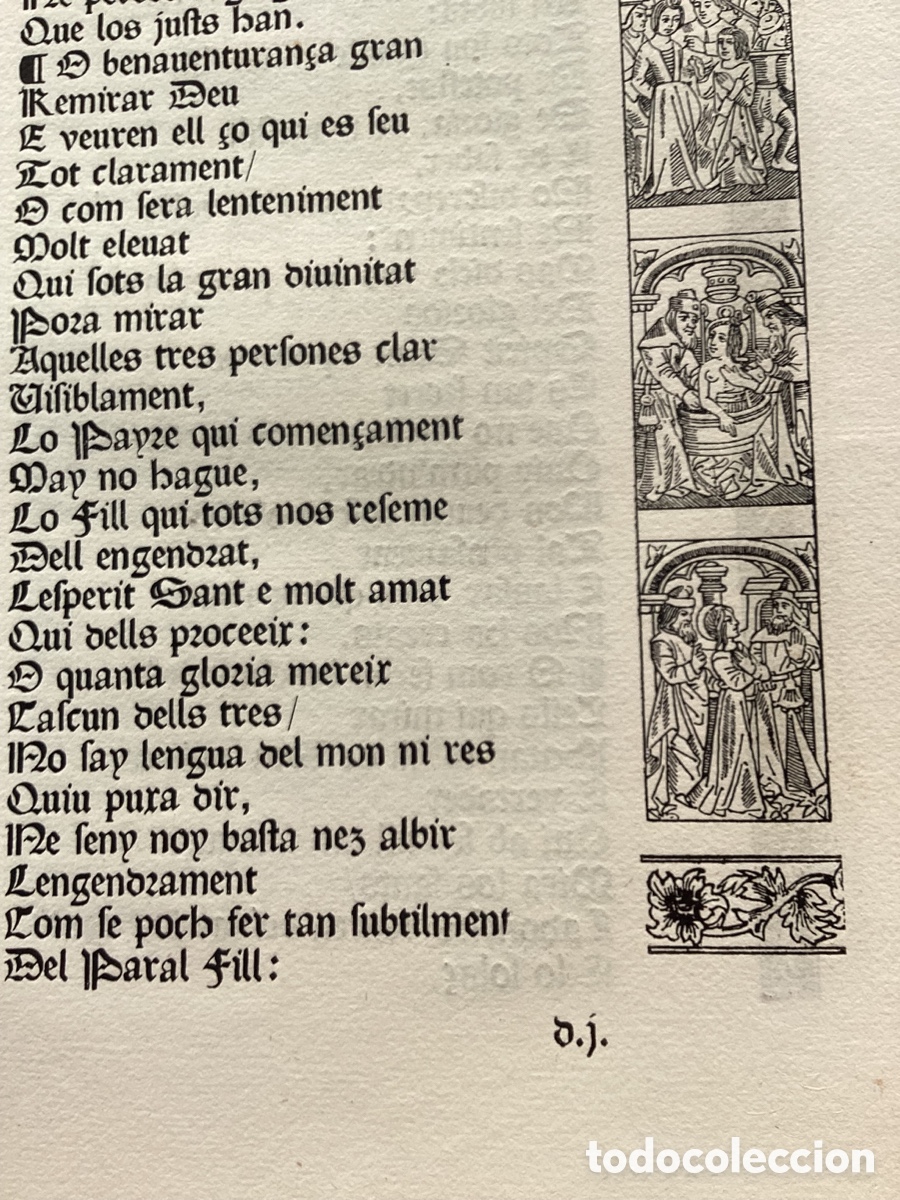 Que los juſts han.
¶ O benauenturança gran
Remirar Deu
E veuren ell ço qui es ſeu
Tot clarament/
O com ſera lenteniment
Molt eleuat
Qui ſots la gran diuinitat
Pora mirar
Aquelles tres perſones clar
Uiſiblament,
Lo Payre qui començament
May no hague,
Lo Fill qui tots nos reſeme
Dell engendrat,
Leſperit Sant e molt amat
Qui dells proceeix:
O quanta gloria mereix
Caſcun dells tres/
No ſay lengua del mon ni res
Quiu puxa dir,
Ne ſeny noy baſta nez albir
Lengendrament
Com ſe poch fer tan ſubtilment
Del Paral Fill:
d.j.
todocoleccion